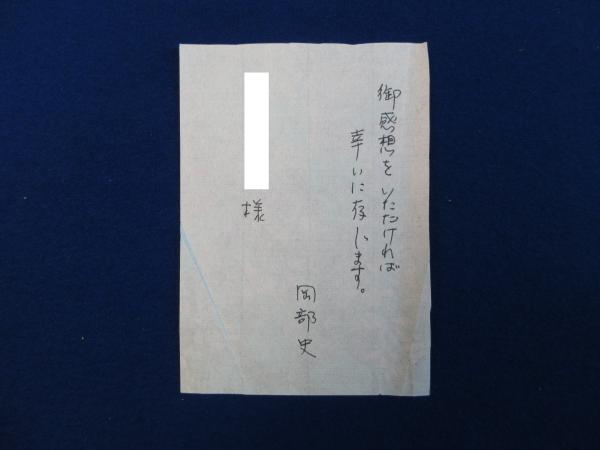 御感想をいただければ
幸いに存じます。
岡部史
様